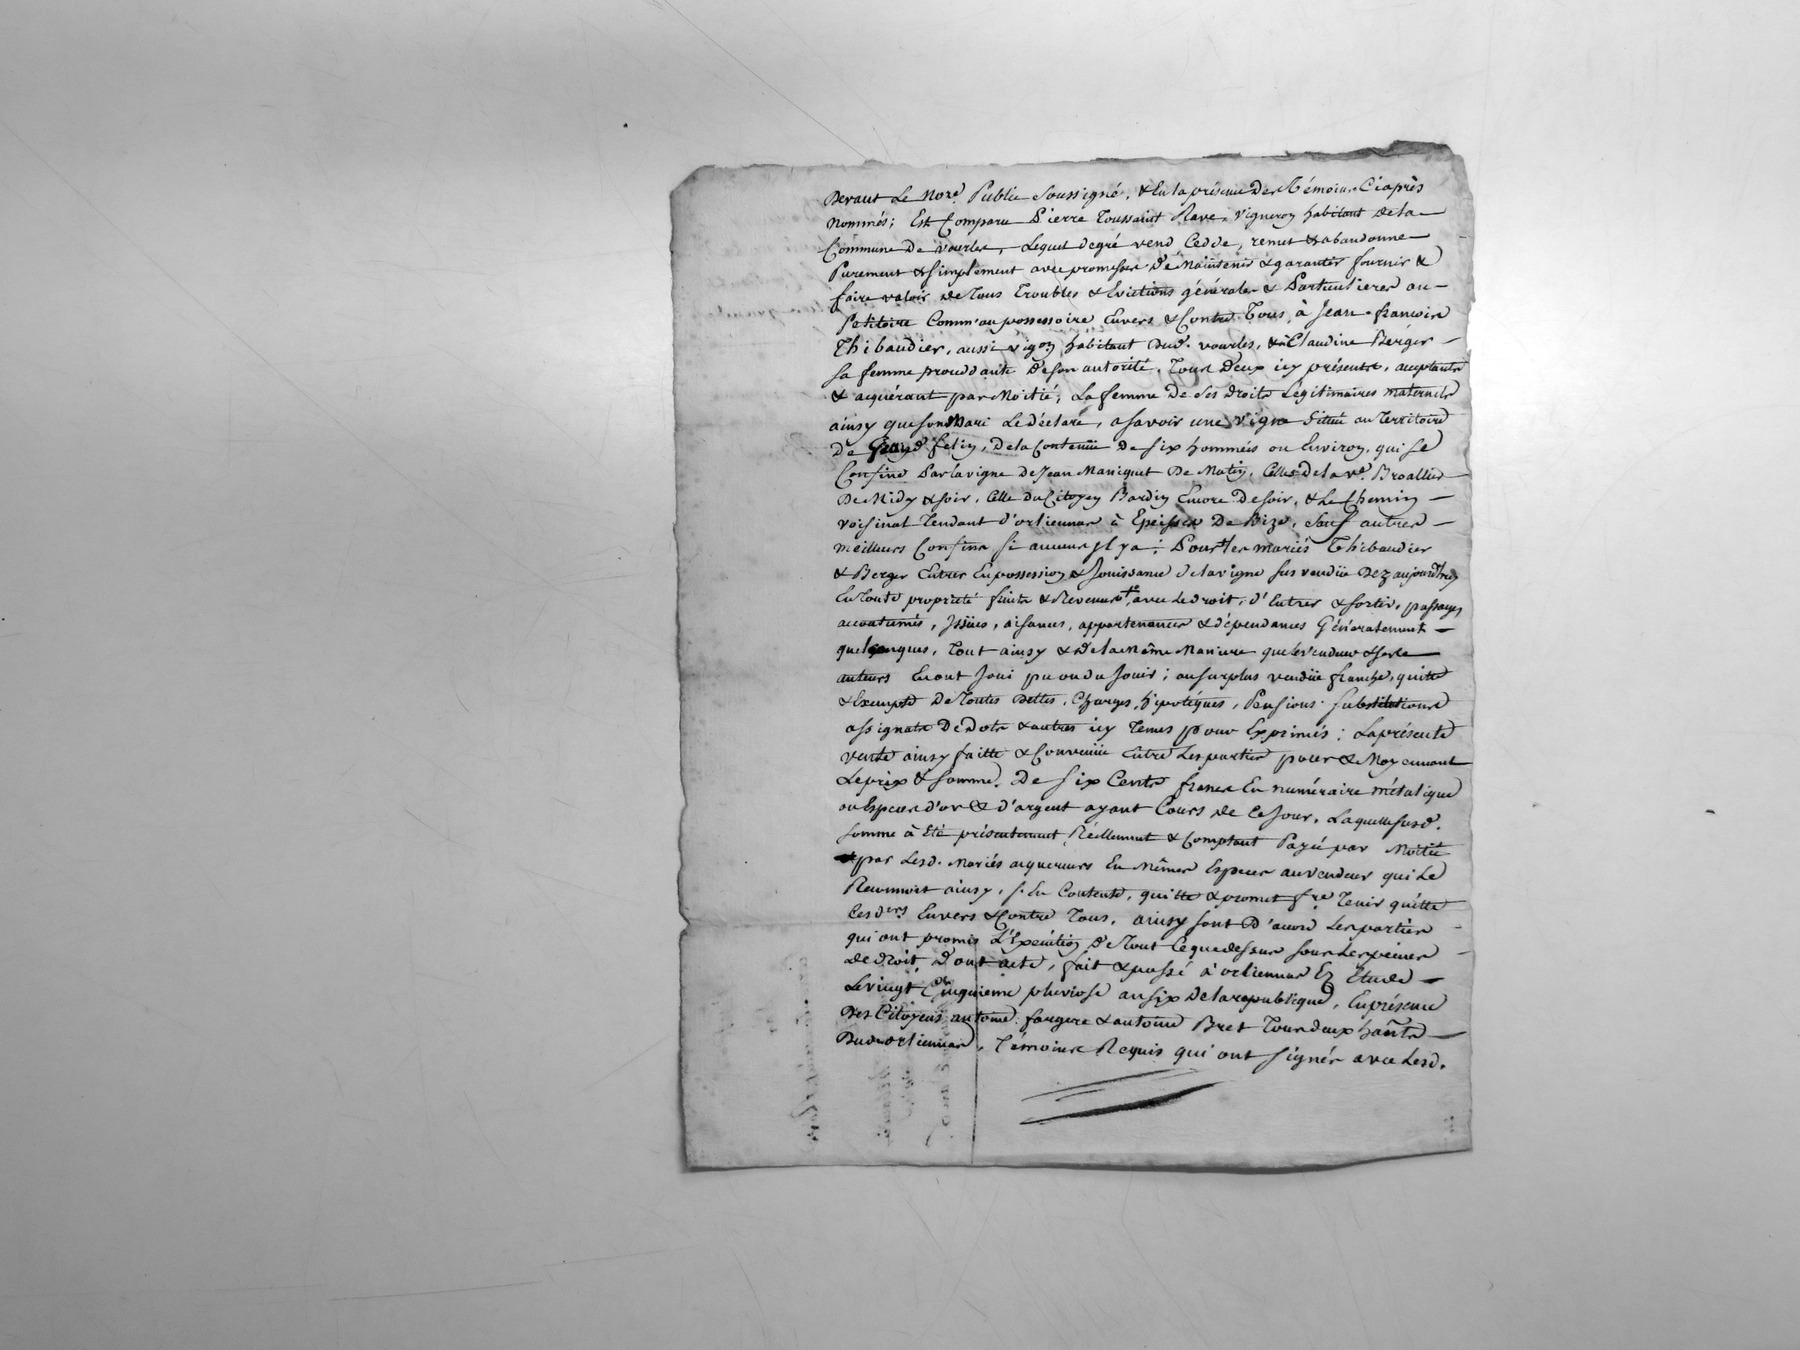 Devant Le Nore. Public Soussigné, & En la présence Des Témoins Ciaprès
Nommés; Est Comparu Pierre Toussaint Rave, Vigneron habitant de la
Commune De Vourles, Lequel degré vend, Cedde, remet & abandonne
Purement & simplement avec promesse De Maintenir & garantir fournir &
faire valoir de Tous Troubles & Evictions générales & Particulieres au
Petitoire Comm'au possessoire Envers & Contre Tous, à Jean françois
Thibaudier, aussi vigon habitant dud. vourles, & à Claudine Berger
sa femme procédante De son autorité, Tous Deux icy présents, acceptants
& acquérant par Moitié, La femme De Ses droits Légitimaires maternels
ainsy que son Mari Le déclare, asavoir une Vigne Située au Territoire
De Grand felin, De la Contenüe De six hommées ou Environ, qui se
Confine Par la vigne De Jean Maniquet De Matin, Celle de la ve. Broallier
De Midy & soir, Celle du Citoyen Bardin Encore De soir, & Le Chemin
voisinal Tendant d'orliennas à Epeisses De Bize, Sauf autres
meilleurs Confins si aucuns Il ya; Pour les mariés Thibaudier
& Berger Entrer En possession & Jouissance de la vigne sus vendüe Dez aujourd'huy
En Toute propriété fruits & Revenus, avec Le droit, d'Entrer & sortir, passages
accoutumés, Issües, aisances, appartenances & dépendances Généralement
quelconques, Tout ainsy & De la Même Maniere que Le Vendeur & ses
auteurs En ont Joui pu ou du Jouir; au surplus vendüe franche, quitte
& Exempte De Toutes Dettes, Charges, hipotéques, Pensions Substitutions
assignats De Dots & autres icy Tenus pour Exprimés; La présente
vente ainsy faitte & Convenüe Entre Les parties pour & Moyennant
Le prix & somme De six Cents francs En numéraire métalique
ou Especes d'or & d'argent ayant Cours de Ce Jour, Laquelle susd.
somme à Eté présentement Réellement & Comptant Payée par Moitié
par Lesd. Mariés acquereurs En Mêmes Especes au vendeur qui Le
Reconnoit ainsy, s'En Contente, quitte & promet fre. Tenir quitte
Ces ders Envers & Contre Tous, ainsy sont D'accord Les parties
qui ont promis L'Exécution De Tout Ce que dessus sous Les peines
de droit, Dont acte, fait & passé à orliennas En Etude
Le vingt Cinquieme pluviose an six De la republique, En présence
Des Citoyens antoine fargere & antoine Bret Tous deux hants
Dud. orliennas, Témoins Requis qui ont signés avec Lesd.